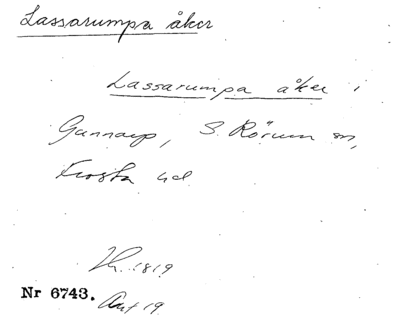 Lassarumpa åker
Lassarumpa åker i
Gunnarp, S. Rörum sn,
Frosta hd
Lh. 1819
Nr 6743. Akt 19